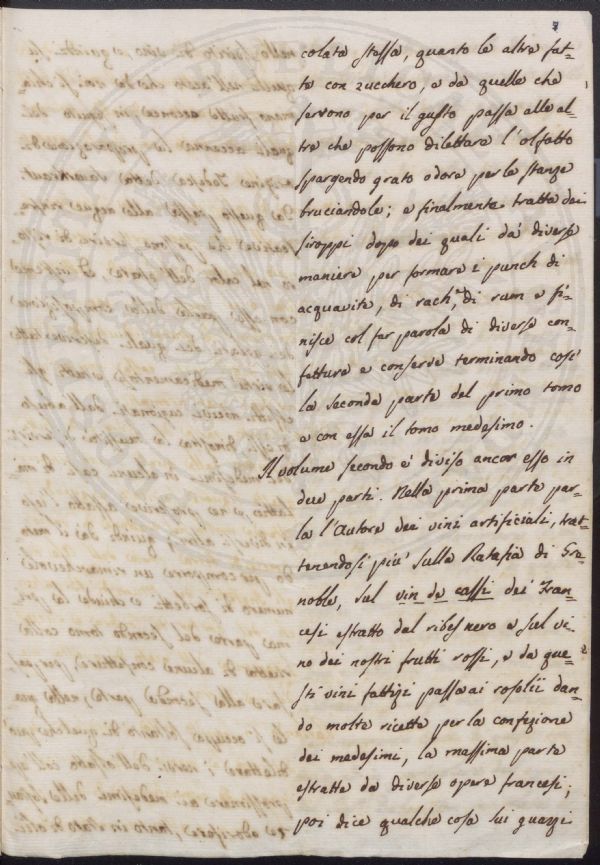 7
colata stessa, quanto le altre fat-
te con zucchero, e da quelle che
servono per il gusto passa alle al-
tre che possono dilettare l'olfatto
spargendo grato odore per le stanze
bruciandole; e finalmente tratta dei
siroppi dopo dei quali dà diverse
maniere per formare i punch di
acquavite, di rach, di rum e fi-
nisce col far parola di diverse con-
fetture e conserve terminando così
la seconda parte del primo tomo
e con essa il tomo medesimo.
Il volume secondo è diviso ancor esso in
due parti. Nella prima parte par-
la l'Autore dei vini artificiali, trat-
tenendosi più sulla Ratafia di Gre-
noble, sul vin de cassi dei Fran-
cesi estratto dal ribes nero e sul vi-
no dei nostri frutti rossi, e da que-
sti vini fattizi passa ai rosolii dan-
do molte ricette per la confezione
dei medesimi, la massima parte
estratte da diverse opere francesi;
poi dice qualche cosa sui guazzi